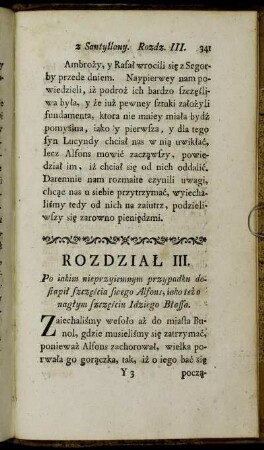 z Santyllany. Rozdz. III. 341
Ambroży, y Rafał wrocili się z Segor-
by przede dniem. Naypierwey nam po-
wiedzieli, iż podroż ich bardzo szczęśli-
wa była, y że iuż pewney sztuki założyli
fundamenta, ktora nie mniey miała bydź
pomyślna, iako ły pierwsza, y dla tego
syn Lucyndy chciał nas w nią uwikłać,
lecz Alfons mowić zacząwszy, powie-
dział im, iż chciał się od nich oddalić.
Daremnie nam rozmaite czynili uwagi,
chcąc nas u siebie przytrzymać, wyiecha-
liśmy tedy od nich na zaiutrz, podzieli-
wszy się zarowno pieniędzmi.
ROZDZIAŁ III.
Po iakim nieprzyiemnym przypadku do-
stąpił szczęścia swego Alfons, iako też o
nagłym szczęściu Idziego Błassa.
Zaiechaliśmy wesoło aż do miasta Bu-
nol, gdzie musieliśmy się zatrzymać,
ponieważ Alfons zachorował, wielka po-
rwała go gorączka, tak, iż o iego bać się
Y 3 począ-